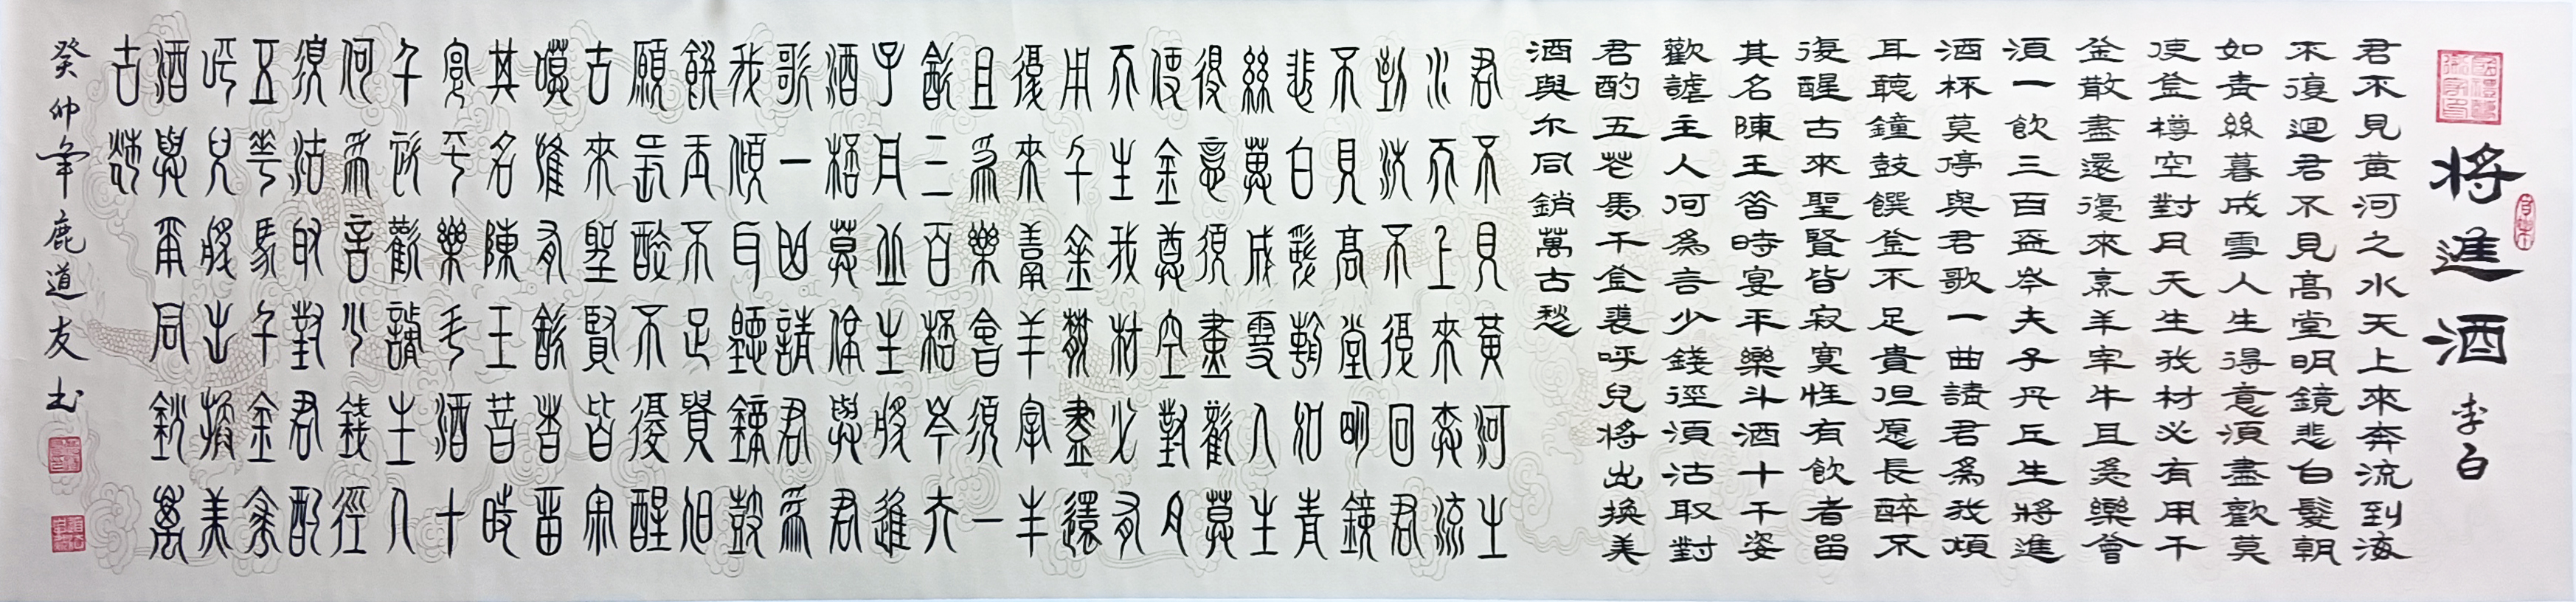 將進酒
李白
君不見黃河之水天上來奔流到海
不復迴君不見高堂明鏡悲白髮朝
如青絲暮成雪人生得意須盡歡莫
使金樽空對月天生我材必有用千
金散盡還復來烹羊宰牛且為樂會
須一飲三百盃岑夫子丹丘生將進
酒杯莫停與君歌一曲請君為我傾
耳聽鐘鼓饌金不足貴但愿長醉不
復醒古來聖賢皆寂寞惟有飲者留
其名陳王昔時宴平樂斗酒十千姿
歡謔主人何為言少錢徑須沽取對
君酌五花馬千金裘呼兒將出換美
酒與尔同銷萬古愁
君不見黃河之
水天上來奔流
到海不復回君
不見高堂明鏡
悲白髮朝如青
絲暮成雪人生
得意須盡歡莫
使金尊空對月
天生我材必有
用千金散盡還
復來烹羊宰牛
且為樂會須一
飲三百杯岑夫
子丹丘生將進
酒杯莫停與君
歌一曲請君為
我傾耳聽鐘鼓
饌玉不足貴但
願長醉不復醒
古來聖賢皆寂
寞惟有飲者留
其名陳王昔時
宴平樂斗酒十
千恣歡謔主人
何為言少錢徑
須沽取對君酌
五花馬千金裘
呼兒將出換美
酒與爾同銷萬
古愁
癸卯年鹿道友书